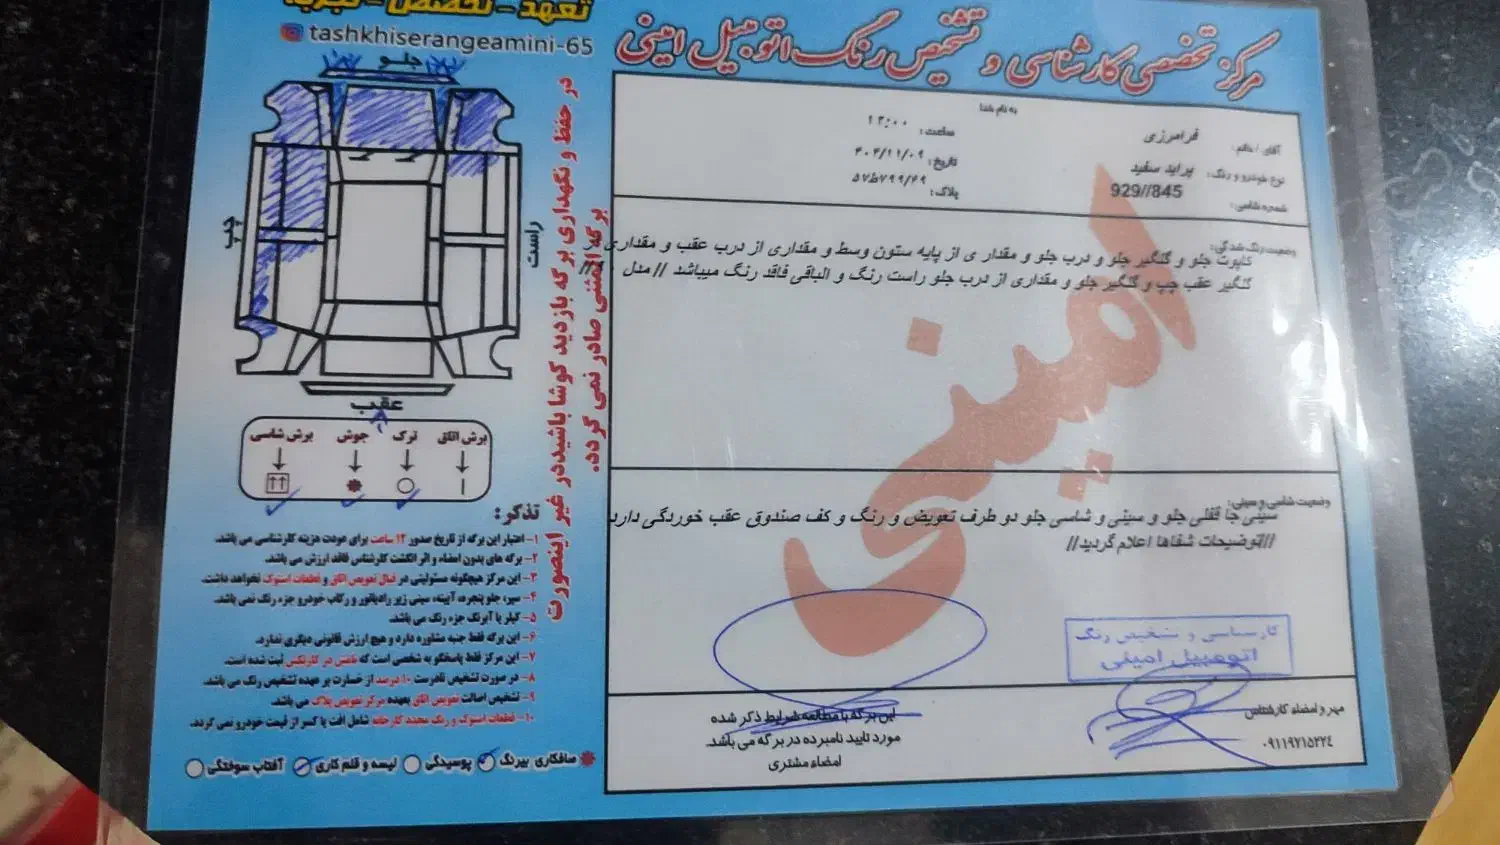 تعهد - تخصص - تجربه
tashkhiserangeamini-65
مرکز تخصصی کارشناسی و تشخیص رنگ اتومبیل امینی
به نام خدا
آقای / خانم: فرامرزی
ساعت:
نوع خودرو و رنگ: پراید سفید
تاریخ: ۴۰۴/۱۱/۰۹
شماره شاسی: 929//845
پلاک:
وضعیت رنگ شدگی:
کاپوت جلو و گلگیر جلو و درب جلو و مقدار ی از پایه ستون وسط و مقداری از درب عقب و مقداری
گلگیر عقب چپ و گلگیر جلو و مقداری از درب جلو راست رنگ و الباقی فاقد رنگ میباشد // مدل
امینی
وضعیت شاسی و سینی:
سینی جا قفلی جلو و سینی و شاسی جلو دو طرف تعویض و رنگ و کف صندوق عقب خوردگی دارد
//توضیحات شفاها اعلام گردید//
کارشناسی و تشخیص رنگ
اتومبیل امینی
مهر و امضاء کارشناس
۰۹۱۱۹۷۱۵۲۲٤
این برگه با مطالعه شرایط ذکر شده
مورد تایید نامبرده در برگه می باشد.
امضاء مشتری
در حفظ و نگهداری برگه بازدید کوشا باشید در غیر اینصورت
برگه المثنی صادر نمی گردد.
جلو
چپ
راست
عقب
برش اتاق
ترک
جوش
برش شاسی
تذکر:
۱- اعتبار این برگه از تاریخ صدور ۱۲ ساعت برای عودت هزینه کارشناسی می باشد.
۲- برگه های بدون امضاء و اثر انگشت کارشناس فاقد ارزش می باشد.
۳- این مرکز هیچگونه مسئولیتی در قبال تعویض اتاق و قطعات استوک نخواهد داشت.
۴- سپر، جلو پنجره، آیینه، سینی زیر رادیاتور و رکاب خودرو جزء رنگ نمی باشد.
۵- کیلر یا آبرنگ جزء رنگ می باشد.
۶- این برگه فقط جنبه مشاوره دارد و هیچ ارزش قانونی دیگری ندارد.
۷- این مرکز فقط پاسخگو به شخصی است که نامش در کارتکس ثبت شده است.
۸- در صورت تشخیص نادرست ۱۰ درصد از خسارت بر عهده تشخیص رنگ می باشد.
۹- تشخیص اصالت تعویض اتاق بعهده مرکز تعویض پلاک می باشد.
۱۰- قطعات استوک و رنگ مجدد کارخانه شامل افت یا کسر از قیمت خودرو نمی گردد.
صافکاری بیرنگ پوسیدگی لیسه و قلم کاری آفتاب سوختگی